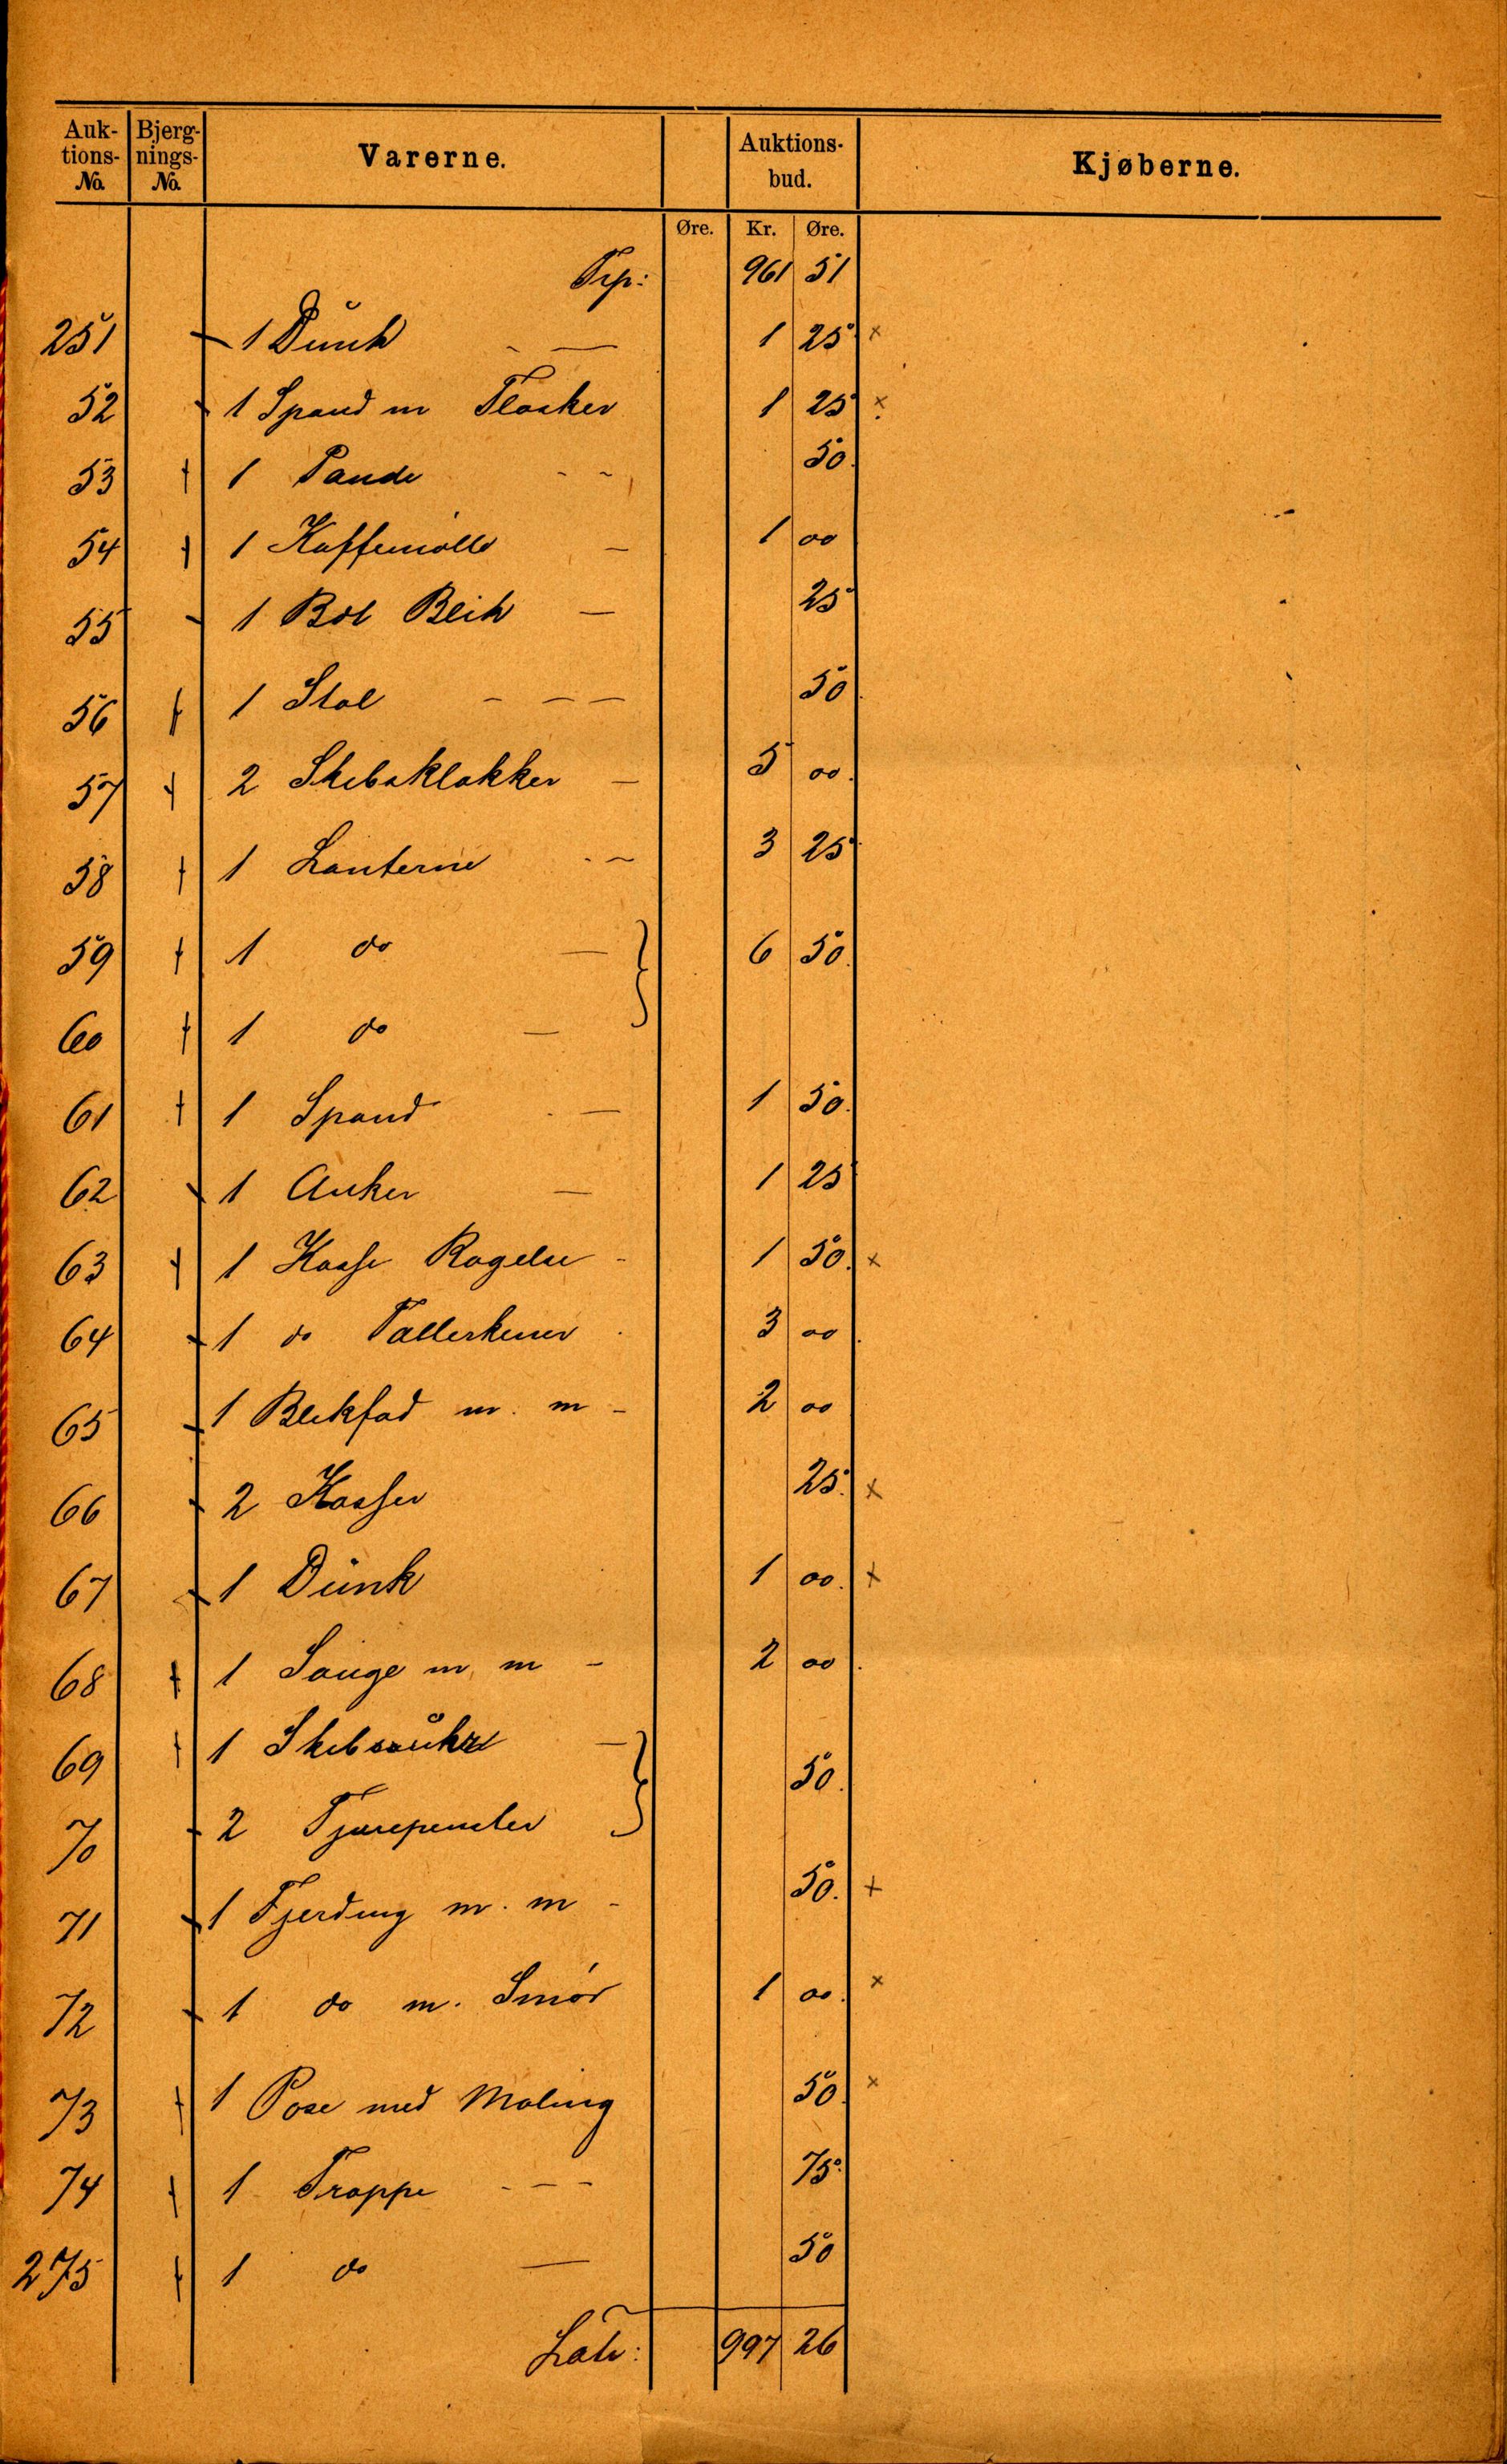 Auktions- No. Bjergnings- No. Varerne. Auktionsbud. Kjøberne.
Øre. Kr. Øre.
Trp: 961 51
251 1 Dunk 1 25 ×
52 1 Spand m Flasker 1 25 ×
53 1 Pande 50
54 1 Kaffemølle 1 00
55 1 Bol Blik 25
56 1 Stol 50
57 2 Skibsklokker 5 00
58 1 Lanterne 3 25
59 1 do 6 50
60 1 do
61 1 Spand 1 50
62 1 Anker 1 25
63 1 Kasse Rogelse 1 50 ×
64 1 do Tallerkener 3 00
65 1 Blikfad m. m 2 00
66 2 Kasser 25 ×
67 1 Dunk 1 00 ×
68 1 Sauge m m 2 00
69 1 50
70 2 Tjærepensler
71 1 Fjerding m. m 50 +
72 1 do m. Smør 1 00 ×
73 1 Pose med Maling 50 ×
74 1 Trappe 75
275 1 do 50
Lats: 997 26